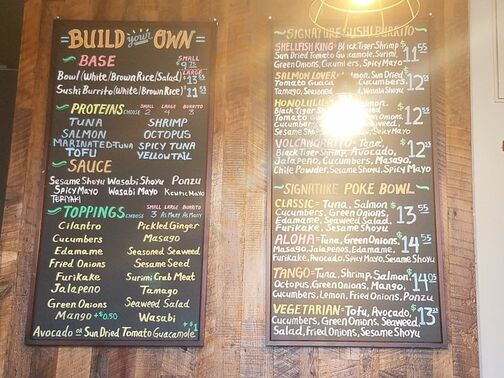 BUILD your OWN
BASE SMALL
$9
LARGE
Bowl (White/Brown Rice/Salad) $13
Sushi Burrito (White/Brown Rice) $11 55
PROTEINS CHOOSE SMALL 2 LARGE BURRITO 3
TUNA SHRIMP
SALMON OCTOPUS
MARINATED TUNA SPICY TUNA
TOFU YELLOWTAIL
SAUCE
Sesame Shoyu Wasabi Shoyu Ponzu
Spicy Mayo Wasabi Mayo Mayo
Teriyaki
TOPPINGS CHOOSE SMALL 3 LARGE As Many BURRITO As Many
Cilantro Pickled Ginger
Cucumbers Masago
Edamame Seasoned Seaweed
Fried Onions Sesame Seed
Furikake Surimi Crab Meat
Jalapeno Tamago
Green Onions Seaweed Salad
Mango +$0.50 Wasabi
Avocado or Sun Dried Tomato Guacamole +$1
SIGNATURE SUSHI BURRITO
SHELLFISH KING- Black Tiger Shrimp $11 55
Sun Dried Tomato Guacamole, Surimi Crab,
Green Onions, Cucumbers, Spicy Mayo
SALMON LOVER- Salmon, Sun Dried $12
Tomato Cucumbers,
Tamago, Seasoned Wasabi Mayo
HONOLULU $12
Black Tiger
Cucumbers,
Sesame Spicy Mayo
VOLCANO BURRITO- Tuna, $12
Black Tiger Shrimp, Avocado,
Jalapeno, Cucumbers, Masago,
Chile Powder, Sesame Shoyu, Spicy Mayo
SIGNATURE POKE BOWL
CLASSIC- Tuna, Salmon $13 55
Cucumbers, Green Onions,
Edamame, Seaweed Salad,
Furikake, Sesame Shoyu
ALOHA- Tuna, Green Onions, $14 55
Masago, Jalapenos, Edamame, Cucumbers,
Furikake, Avocado, Spicy Mayo, Sesame Shoyu
TANGO- Tuna, Shrimp, Salmon, $14 05
Octopus, Green Onions, Mango,
Cucumbers, Lemon, Fried Onions, Ponzu
VEGETARIAN- Tofu, Avocado, $13
Cucumbers, Green Onions, Seaweed
Salad, Fried Onions, Sesame Shoyu